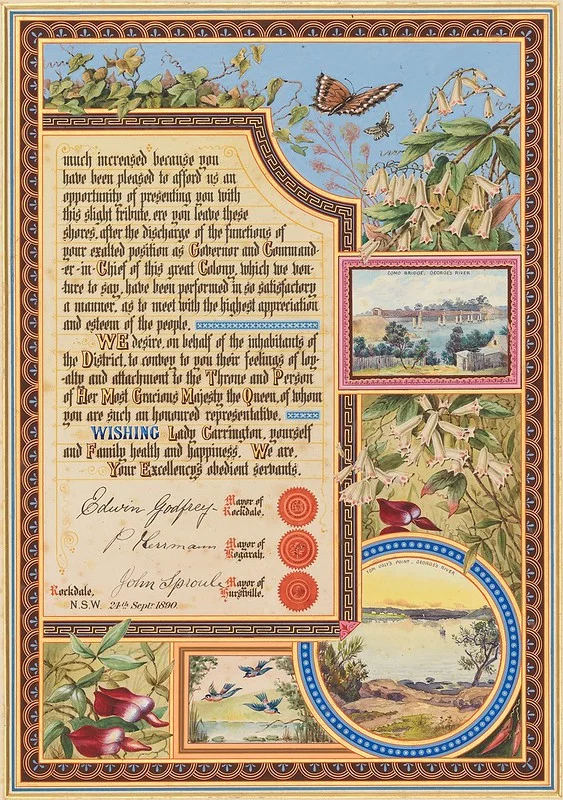 much increased because you
have been pleased to afford us an
opportunity of presenting you with
this slight tribute, ere you leave these
shores, after the discharge of the functions of
your exalted position as Governor and Command-
er-in-Chief of this great Colony, which we ven-
ture to say, have been performed in so satisfactory
a manner, as to meet with the highest appreciation
and esteem of the people.
WE desire, on behalf of the inhabitants of
the District, to convey to you their feelings of loy-
-alty and attachment to the Throne and Person
of Her Most Gracious Majesty the Queen, of whom
you are such an honoured representative.
WISHING Lady Carrington, yourself
and Family health and happiness. We are,
Your Excellency's obedient servants,
Edwin Godfrey Mayor of
Rockdale.
P. Herrmann Mayor of
Kogarah.
John Sproule Mayor of
Hurstville.
Rockdale,
N.S.W. 24th Septr 1890.
COMO BRIDGE, GEORGE'S RIVER
TOM UGLY'S POINT, GEORGE'S RIVER